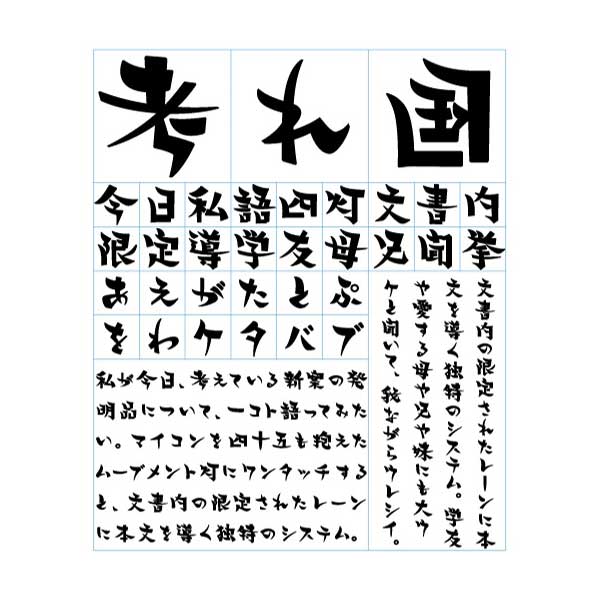 考れ
今日私語四灯文書内
限定導学友母兄聞挙
あえがたとぷ
をわケタバブ
私が今日、考えている新案の発
明品について、一コト語ってみた
い。マイコンを四十五も抱えた
ムーブメント灯にワンタッチする
と、文書内の限定されたレーン
に本文を導く独特のシステム。
文書内の限定されたレーンに本
文を導く独特のシステム。学友
や愛する母や兄や妹にも大ウ
ケと聞いて、我ながらウレシイ。